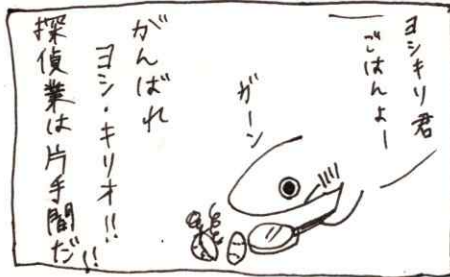 ヨシキリ君
ごはんよー
ガーン
がんばれ
ヨシ・キリオ!!
探偵業は片手間だ!!